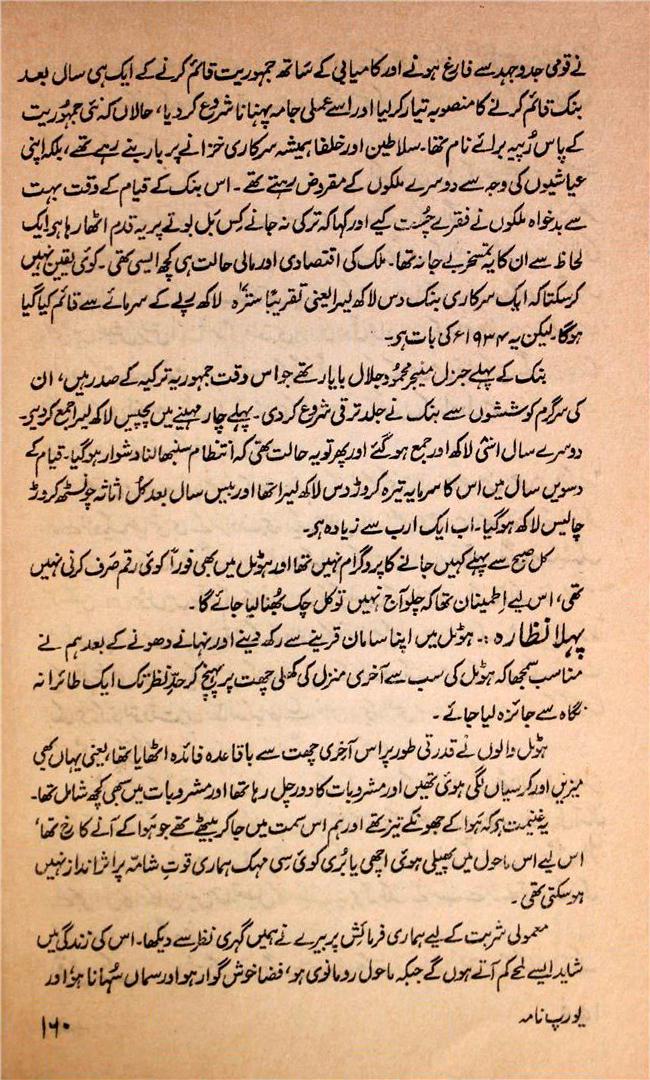 نے قومی جدوجہد سے فارغ ہونے اور کامیابی کے ساتھ جمہوریت قائم کرنے کے ایک ہی سال بعد
بنک قائم کرنے کا منصوبہ تیار کرلیا اور اسے عملی جامہ پہنانا شروع کر دیا، حالاں کہ نئی جمہوریت
کے پاس رُپیہ برائے نام تھا۔ سلاطین اور خلفا ہمیشہ سرکاری خزانے پر بار بنے رہے تھے، بلکہ اپنی
عیاشیوں کی وجہ سے دوسرے ملکوں کے مقروض رہتے تھے۔ اس بنک کے قیام کے وقت بہت
سے بدخواہ ملکوں نے فقرے چُست کیے اور کہا کہ ترکی نہ جانے کس بَل بوتے پر یہ قدم اٹھا رہا ہے، ایک
لحاظ سے ان کا یہ تمسخر بے جا نہ تھا۔ ملک کی اقتصادی اور مالی حالت ہی کچھ ایسی تھی۔ کوئی یقین نہیں
کرسکتا کہ ایک سرکاری بنک دس لاکھ لیرا یعنی تقریباً سترہ لاکھ رپے کے سرمائے سے قائم کیا گیا
ہوگا۔ لیکن یہ ۱۹۳۴ء کی بات ہے۔
بنک کے پہلے جنرل منیجر محمود جلال بایار تھے جو اس وقت جمہوریہ ترکیہ کے صدر ہیں، ان
کی سرگرم کوششوں سے بنک نے جلد ترقی شروع کر دی۔ پہلے چار مہینے میں پچیس لاکھ لیرا جمع کر دیے۔
دوسرے سال اسّی لاکھ اور جمع ہو گئے اور پھر تو یہ حالت تھی کہ انتظام سنبھالنا دشوار ہو گیا۔ قیام کے
دسویں سال میں اس کا سرمایہ تیرہ کروڑ دس لاکھ لیرا تھا اور بیس سال بعد کل اثاثہ چونسٹھ کروڑ
چالیس لاکھ ہو گیا۔ اب ایک ارب سے زیادہ ہے۔
کل صبح سے پہلے کہیں جانے کا پروگرام نہیں تھا اور ہوٹل میں بھی فوراً کوئی رقم صَرف کرنی نہیں
تھی، اس لیے اطمینان تھا کہ چلو آج نہیں تو کل چک بُھنا لیا جائے گا۔
پہلا نظارہ :۔ ہوٹل میں اپنا سامان قرینے سے رکھ دینے اور نہانے دھونے کے بعد ہم نے
مناسب سمجھا کہ ہوٹل کی سب سے آخری منزل کی کُھلی چھت پر پہنچ کر حدِّ نظر تک ایک طائرانہ
نگاہ سے جائزہ لیا جائے۔
ہوٹل والوں نے قدرتی طور پر اس آخری چھت سے باقاعدہ فائدہ اٹھایا تھا، یعنی یہاں بھی
میزیں اور کرسیاں لگی ہوئی تھیں اور مشروبات کا دور چل رہا تھا اور مشروبات میں سبھی کچھ شامل تھا۔
یہ غنیمت ہے کہ ہَوا کے جھونکے تیز تھے اور ہم اس سمت میں جا کر بیٹھے تھے جو ہَوا کے آنے کا رخ تھا،
اس لیے اس ماحول میں پھیلی ہوئی اچھی یا بُری کوئی سی مہک ہماری قوتِ شامّہ پر اثر انداز نہیں
ہو سکتی تھی۔
معمولی شربت کے لیے ہماری فرمائش پر بیرے نے ہمیں گہری نظر سے دیکھا۔ اس کی زندگی میں
شاید ایسے لمحے کم آتے ہوں گے جبکہ ماحول رومانوی ہو، فضا خوش گوار ہو اور سماں سُہانا ہو اور
یورپ نامہ
۱۶۰